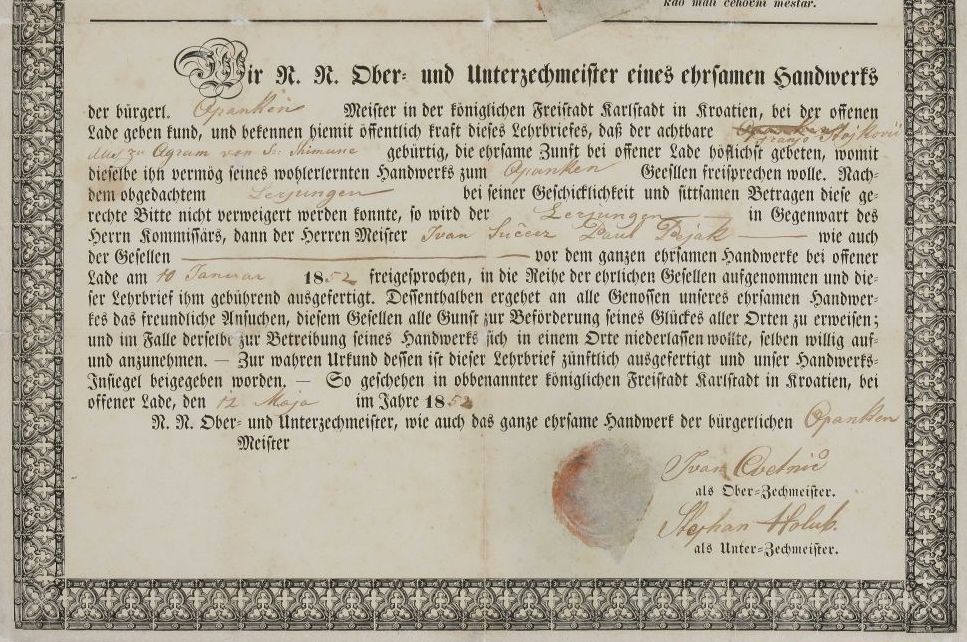 kao mali čehovni meštar.
Wir N. N. Ober- und Unterzechmeister eines ehrsamen Handwerks
der bürgerl. Opanken Meister in der königlichen Freistadt Karlstadt in Kroatien, bei der offenen
Lade geben kund, und bekennen hiemit öffentlich kraft dieses Lehrbriefes, daß der achtbare Franjo
aus zu Agram von gebürtig, die ehrsame Zunft bei offener Lade höflichst gebeten, womit
dieselbe ihn vermög seines wohlerlernten Handwerks zum Opanken Geesllen freisprechen wolle. Nach-
dem obgedachtem Lerjungen bei seiner Geschicklichkeit und sittsamen Betragen diese ge-
rechte Bitte nicht verweigert werden konnte, so wird der Lerjungen in Gegenwart des
Herrn Kommissärs, dann der Herren Meister Ivan Paul wie auch
der Gesellen — vor dem ganzen ehrsamen Handwerke bei offener
Lade am 10 Januar 1852 freigesprochen, in die Reihe der ehrlichen Gesellen aufgenommen und die-
ser Lehrbrief ihm gebührend ausgefertigt. Dessenthalben ergehet an alle Genossen unseres ehrsamen Handwer-
kes das freundliche Ansuchen, diesem Gesellen alle Gunst zur Beförderung seines Glückes aller Orten zu erweisen;
und im Falle derselbe zur Betreibung seines Handwerks sich in einem Orte niederlassen wollte, selben willig auf-
und anzunehmen. — Zur wahren Urkund dessen ist dieser Lehrbrief zünftlich ausgefertigt und unser Handwerks-
Insiegel beigegeben worden. — So geschehen in obbenannter königlichen Freistadt Karlstadt in Kroatien, bei
offener Lade, den 12 Maja im Jahre 1852
N. N. Ober- und Unterzechmeister, wie auch das ganze ehrsame Handwerk der bürgerlichen Opanken
Meister
Ivan Cvetnić
als Ober-Zechmeister.
Stephan Holub.
als Unter-Zechmeister.